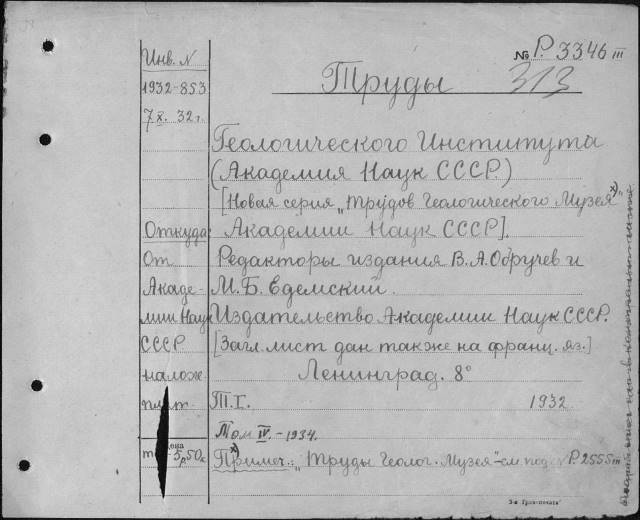 Инв. N
1932-853
7 X. 32 г.
Откуда:
От
Акаде-
мии Наук
СССР
налож.
цена
5р50к
№ Р. 3346 III
313
Труды
Геологического Института
(Академия Наук СССР.)
[Новая серия „Трудов Геологического Музея х)"
Академии Наук СССР].
Редакторы издания В.А. Обручев и
М.Б. Едемский.
Издательство Академии Наук СССР.
[Загл. лист дан также на франц. яз.]
Ленинград. 8°
Т. I. 1932
Том IV. - 1934.
х) Примеч.: „Труды Геолог. Музея"-см под Р. 2555 III